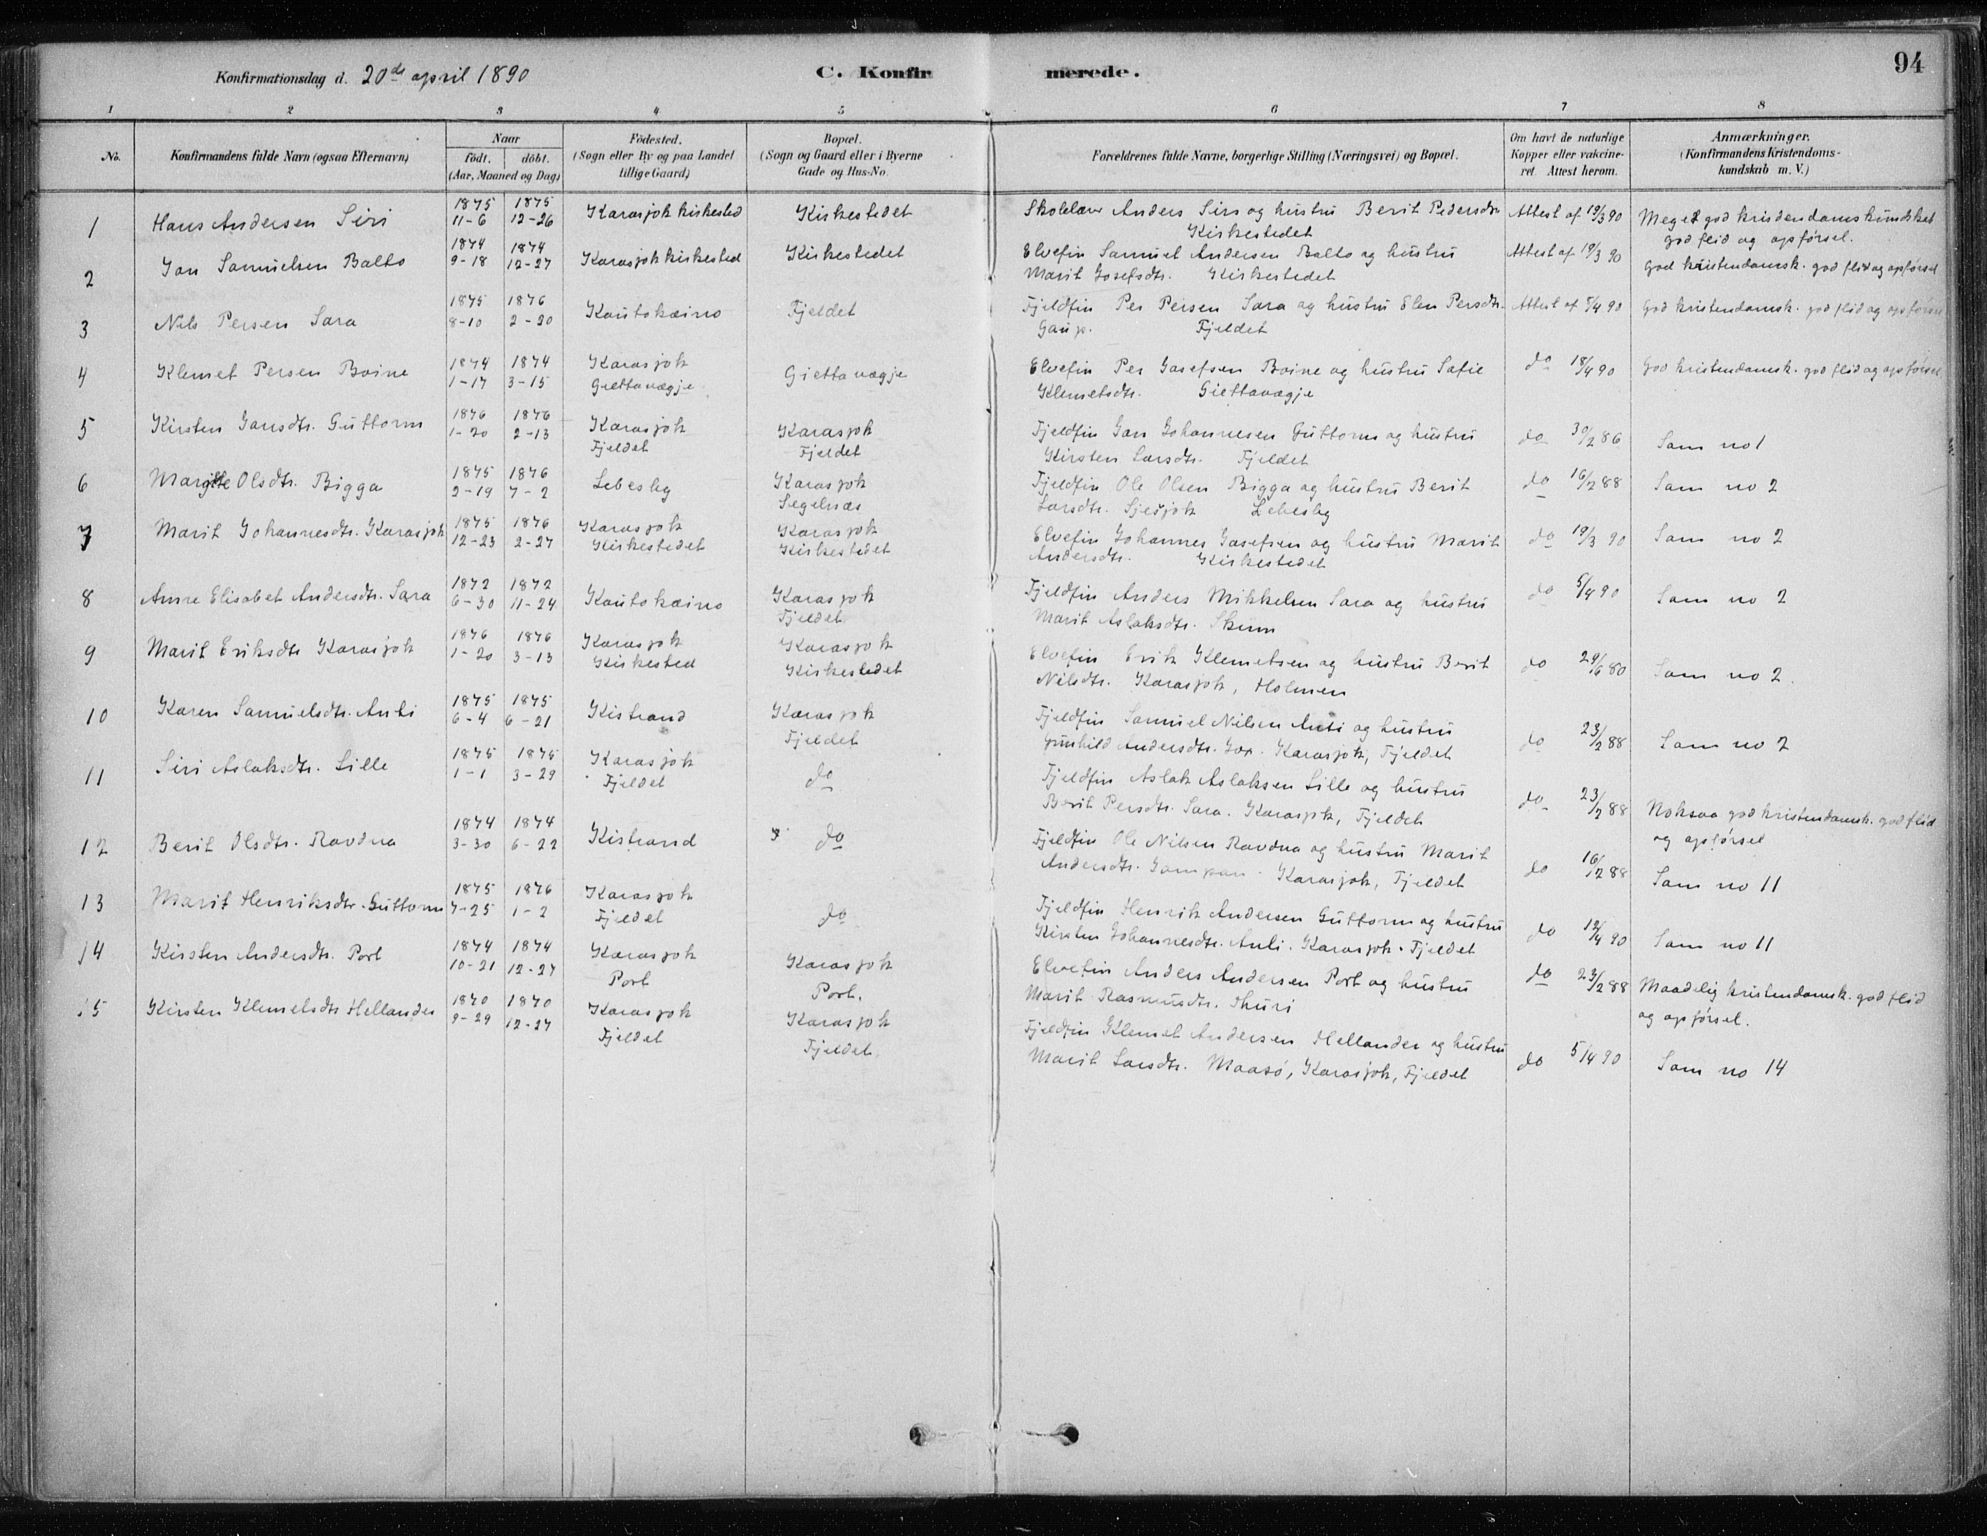 94
Konfirmationsdag d. 20de april 1890 C. Konfirmerede.
1 2 3 4 5 6 7 8
No. Konfirmandens fulde Navn (ogsaa Efternavn) Naar födt. döbt. (Aar, Maaned og Dag) Födested. (Sogn eller By og paa Landet tillige Gaard) Bopæl. (Sogn og Gaard eller i Byerne Gade og Hus-No. Forældrenes fulde Navne, borgerlige Stilling (Næringsvei) og Bopæl. Om havt de naturlige Kopper eller vakcineret. Attest herom. Anmærkninger. (Konfirmandens Kristendomskundskab m. V.)
1 Hans Andersen Siri 1875 11-6 1875 12-26 Karasjok kirkested Kirkestedet Skolelærer Anders Siri og hustru Berit Pedersdtr. Kirkestedet Attest af 19/3 90 Meget god kristendomskundskab god flid og opførsel.
2 Jan Samuelsen Balto 1874 9-18 1874 12-27 Karasjok kirkested Kirkestedet Elvefin Samuel Andersen Balto og hustru Marit Josefsdtr. Kirkestedet Attest af 19/3 90 God kristendomsk. god flid og opførsel
3 Nils Persen Sara 1875 8-10 1876 2-20 Kautokæino Fjeldet Fjeldfin Per Persen Sara og hustru Elen Persdtr. Gaup. Fjeldet Attest af 5/4 90 God kristendomsk. god flid og opførsel
4 Klemet Persen Boine 1874 1-17 1874 3-15 Karasjok Giettavægje Giettavægje Elvefin Per Josefsen Boine og hustru Sofie Klemetsdtr. Giettavægje do 18/4 90 God kristendomsk. god flid og opførsel
5 Kirsten Jansdtr. Guttorm 1876 1-20 1876 2-13 Karasjok Fjeldet Karasjok Fjeldet Fjeldfin Jan Johannesen Guttorm og hustru Kirsten Larsdtr. Fjeldet do 30/2 86 Som no 1
6 Margitte Olsdtr. Bigga 1875 2-19 1876 7-2 Lebesby Karasjok Segelnæs Fjeldfin Ole Olsen Bigga og hustru Berit Larsdtr. Sjesjok Lebesby do 16/2 88 Som no 2
7 Marit Johannesdtr. Karasjok 1875 12-23 1876 2-27 Karasjok Kirkestedet Karasjok Kirkestedet Elvefin Johannes Josefsen og hustru Marit Andersdtr. Kirkestedet do 19/3 90 Som no 2
8 Anne Elisabet Andersdtr. Sara 1872 6-30 1872 11-24 Kautokæino Karasjok Fjeldet Fjeldfin Anders Mikkelsen Sara og hustru Marit Aslaksdtr. Skum do 5/4 90 Som no 2
9 Marit Eriksdtr Karasjok 1876 1-20 1876 3-13 Karasjok Kirkested Karasjok Kirkestedet Elvefin Erik Klemetsen og hustru Berit Nilsdtr. Karasjok, Holmen do 29/6 80 Som no 2.
10 Karen Samuelsdtr. Anti 1875 6-4 1875 6-21 Kistrand Karasjok Fjeldet Fjeldfin Samuel Nilsen Anti og hustru Gunhild Andersdtr. Karasjok, Fjeldet do 23/2 88 Som no 2
11 Siri Aslaksdtr. Lille 1875 1-1 1875 3-29 Karasjok Fjeldet do Fjeldfin Aslak Aslaksen Lille og hustru Berit Persdtr. Sara. Karasjok, Fjeldet do 23/2 88 Noksaa god kristendomsk. god flid og opførsel
12 Berit Olsdtr. Ravdna 1874 3-30 1874 6-22 Kistrand do Fjeldfin Ole Nilsen Ravdna og hustru Marit Andersdtr. Karasjok, Fjeldet do 16/2 88 Som no 11
13 Marit Henriksdtr. Guttorm 1875 7-25 1876 1-2 Karasjok Fjeldet do Fjeldfin Henrik Andersen Guttorm og hustru Kirsten Johannesdtr. Anti. Karasjok. Fjeldet do 12/4 90 Som no 11
14 Kirsten Andersdtr. Port 1874 10-21 1874 12-27 Karasjok Port Karasjok Port. Elvefin Anders Andersen Port og hustru Marit Rasmusdtr. Thuri do 23/2 88 Maadelig kristendomsk. god flid og opførsel.
15 Kirsten Klemetsdtr Hellander 1870 9-29 1870 12-27 Karasjok Fjeldet Karasjok Fjeldet. Fjeldfin Klemet Andersen Hellander og hustru Marit Larsdtr. Maasö, Karasjok, Fjeldet do 5/4 90 Som no 14